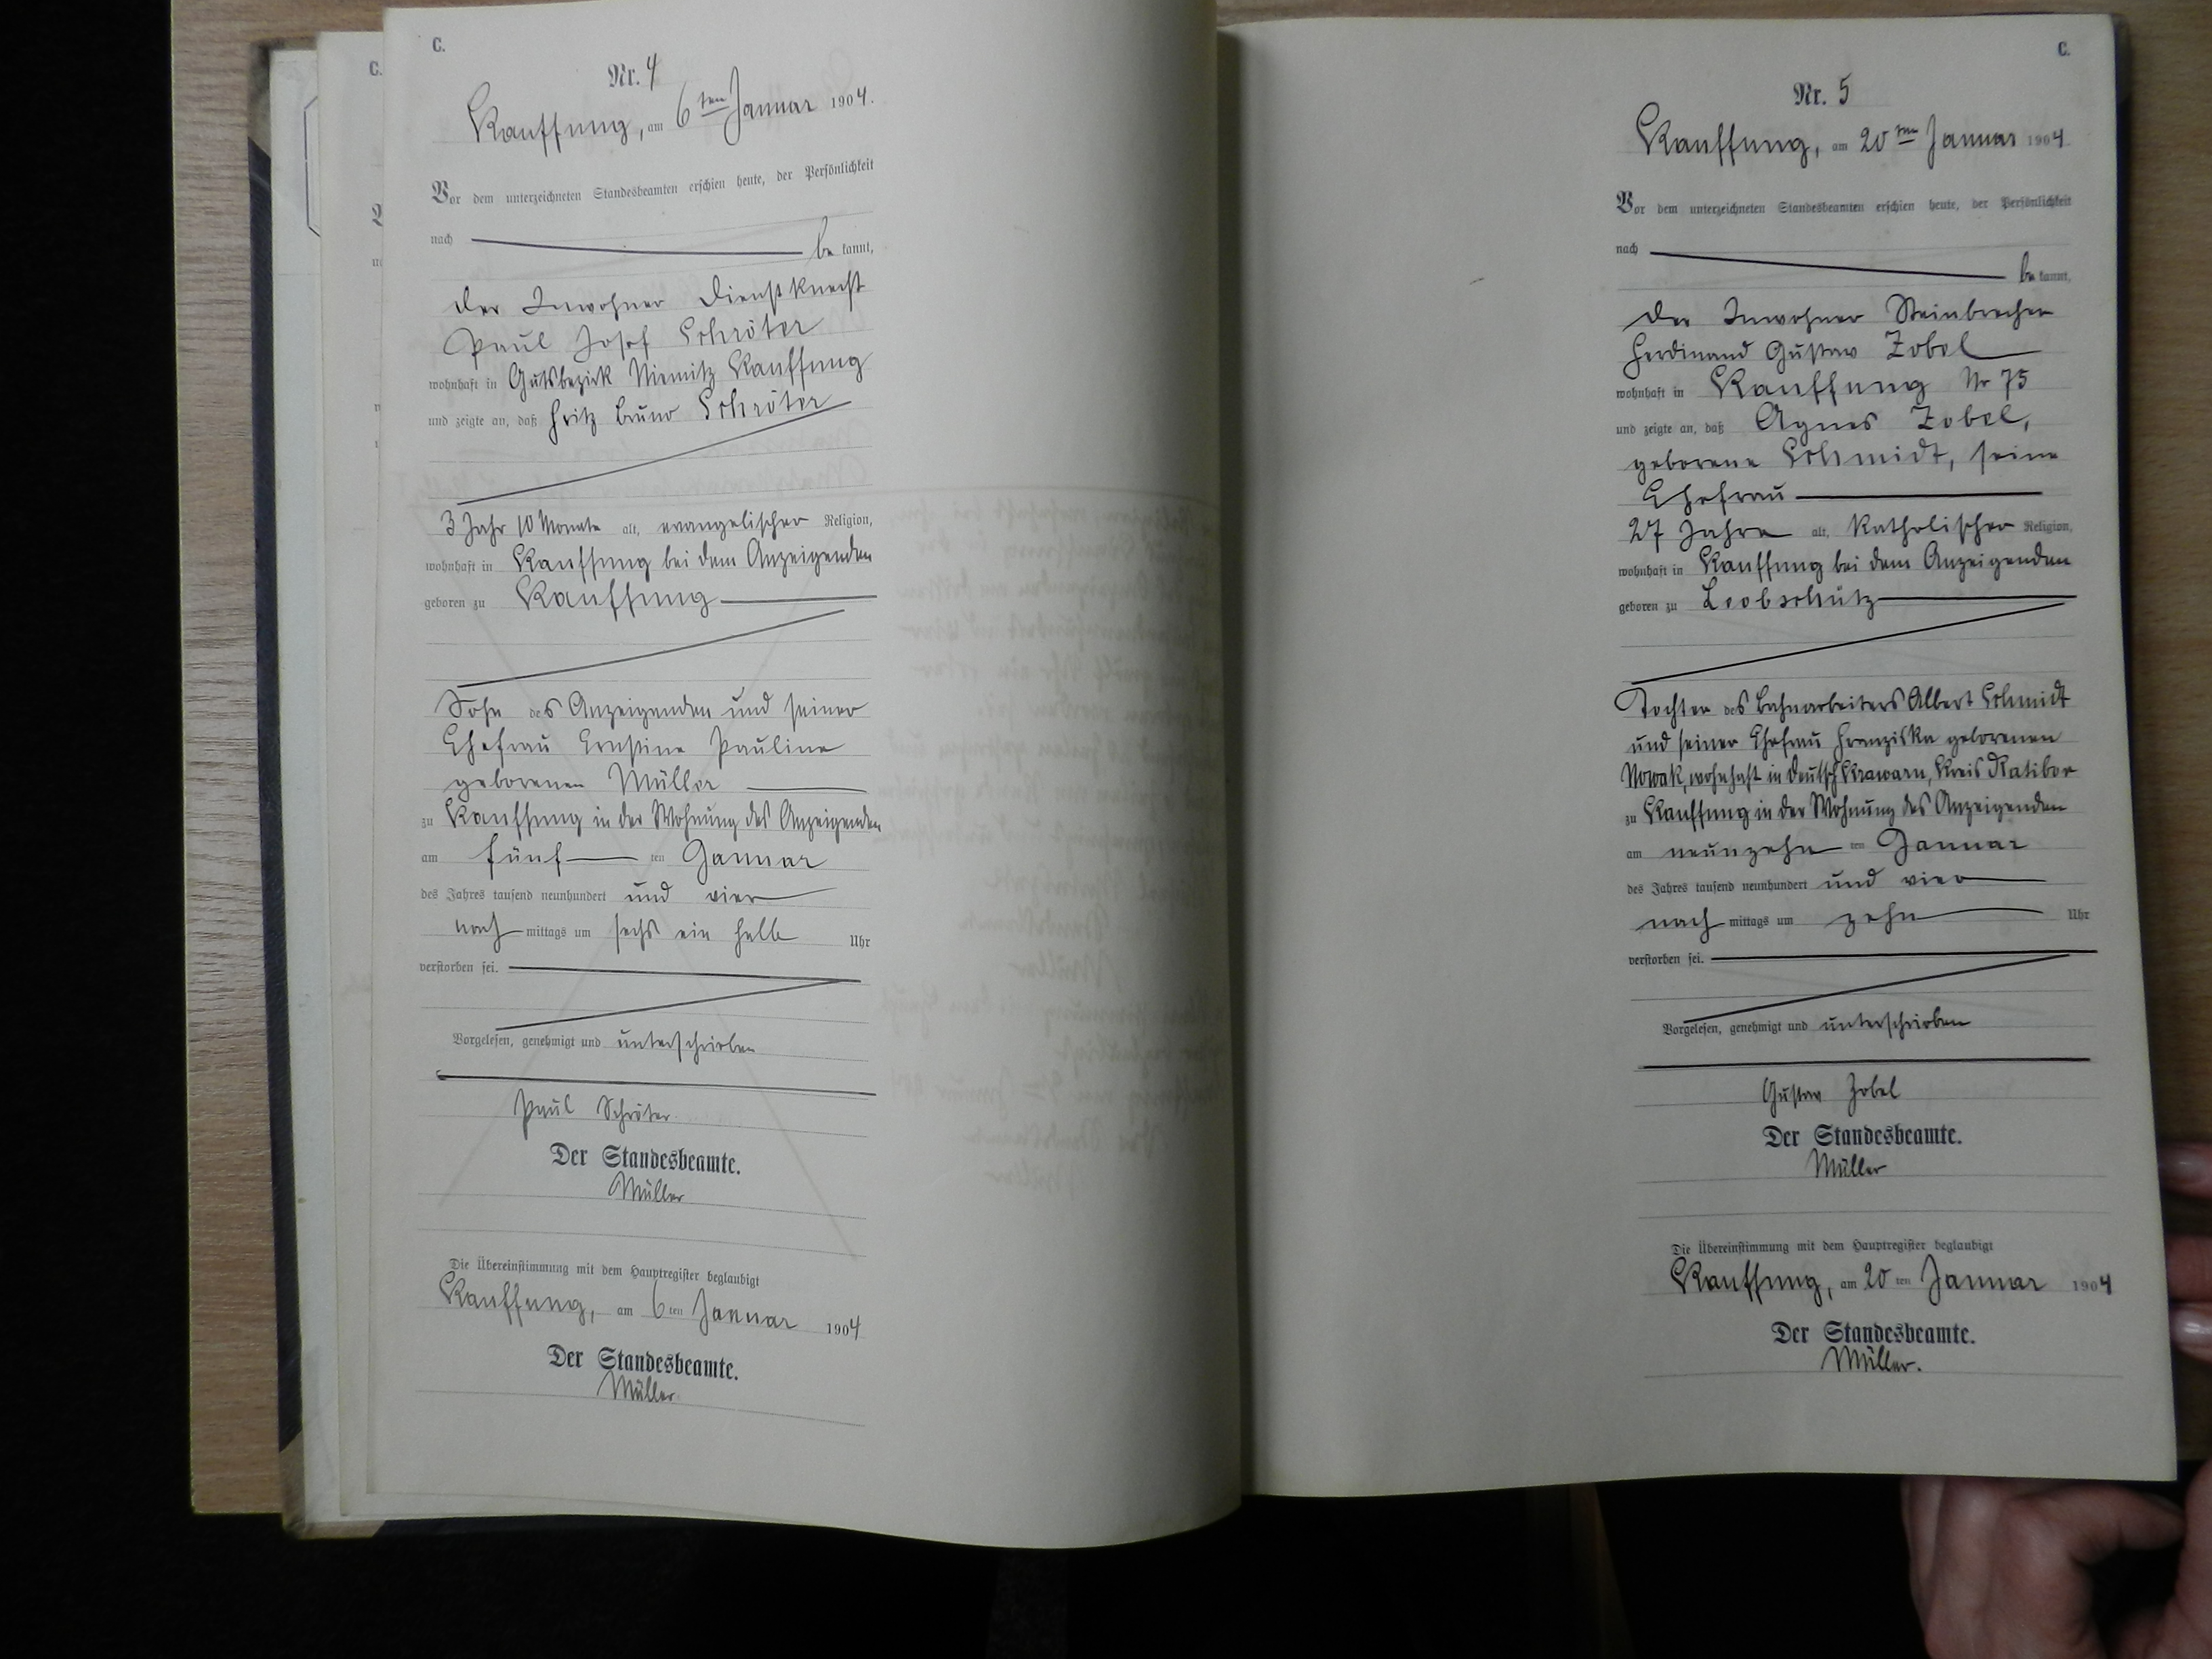 C.
Nr. 4
Kauffung, am 6ten Januar 1904.
Vor dem unterzeichneten Standesbeamten erschien heute, der Persönlichkeit
nach be kannt,
der Inwohner Dienstknecht
Paul Josef Schröter
wohnhaft in Gutsbezirk Niemitz Kauffung
und zeigte an, daß Fritz Bruno Schröter
3 Jahr 10 Monate alt, evangelischer Religion,
wohnhaft in Kauffung bei dem Anzeigenden
geboren zu Kauffung
Sohn des Anzeigenden und seiner
Ehefrau Ernstine Pauline
geborenen Müller
zu Kauffung in der Wohnung des Anzeigenden
am fünf ten Januar
des Jahres tausend neunhundert und vier
nach mittags um sechs ein halb Uhr
verstorben sei.
Vorgelesen, genehmigt und unterschrieben
Paul Schröter
Der Standesbeamte.
Müller
Die Übereinstimmung mit dem Hauptregister beglaubigt
Kauffung, am 6ten Januar 1904
Der Standesbeamte.
Müller
C.
Nr. 5
Kauffung, am 20ten Januar 1904.
Vor dem unterzeichneten Standesbeamten erschien heute, der Persönlichkeit
nach be kannt,
der Inwohner Steinbrecher
Ferdinand Gustav Zobel
wohnhaft in Kauffung Nr 75
und zeigte an, daß Agnes Zobel,
geborene Schmidt, seine
Ehefrau
27 Jahre alt, katholischer Religion,
wohnhaft in Kauffung bei dem Anzeigenden
geboren zu Leobschütz
Tochter des Bahnarbeiters Albert Schmidt
und seiner Ehefrau Franziska geborenen
Nowak, wohnhaft in Deutsch Krawarn, Kreis Ratibor
zu Kauffung in der Wohnung des Anzeigenden
am neunzehn ten Januar
des Jahres tausend neunhundert und vier
nach mittags um zehn Uhr
verstorben sei.
Vorgelesen, genehmigt und unterschrieben
Gustav Zobel
Der Standesbeamte.
Müller
Die Übereinstimmung mit dem Hauptregister beglaubigt
Kauffung, am 20 ten Januar 1904
Der Standesbeamte.
Müller.